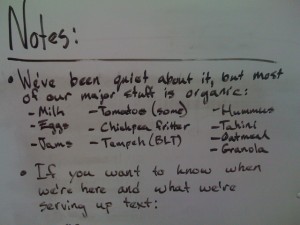 Notes:
• We've been quiet about it, but most
of our major stuff is organic:
- Milk - Tomatos (some) - Hummus
- Eggs - Chickpea fritter - Tahini
- Jams - Tempeh (BLT) - Oatmeal
- Granola
• If you want to know when
we're here and what we're
serving up text: